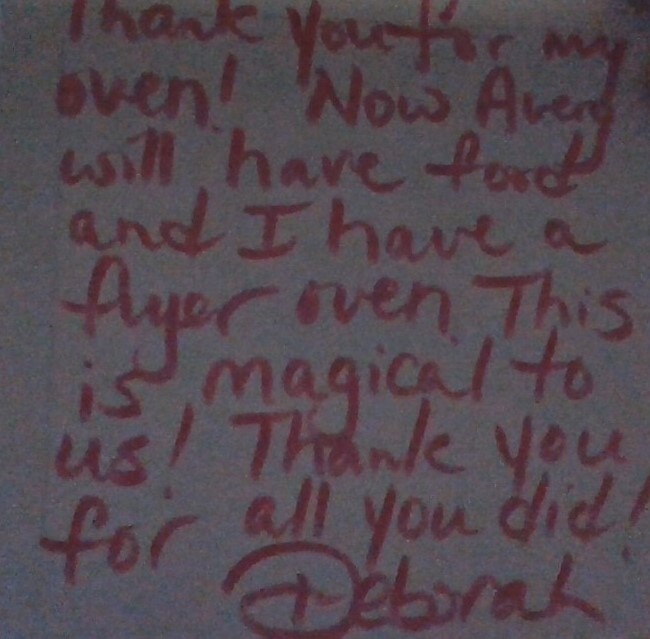 Thank you for my
oven! Now Avery
will have food
and I have a
fryer oven This
is magical to
us! Thank you
for all you did!
Deborah